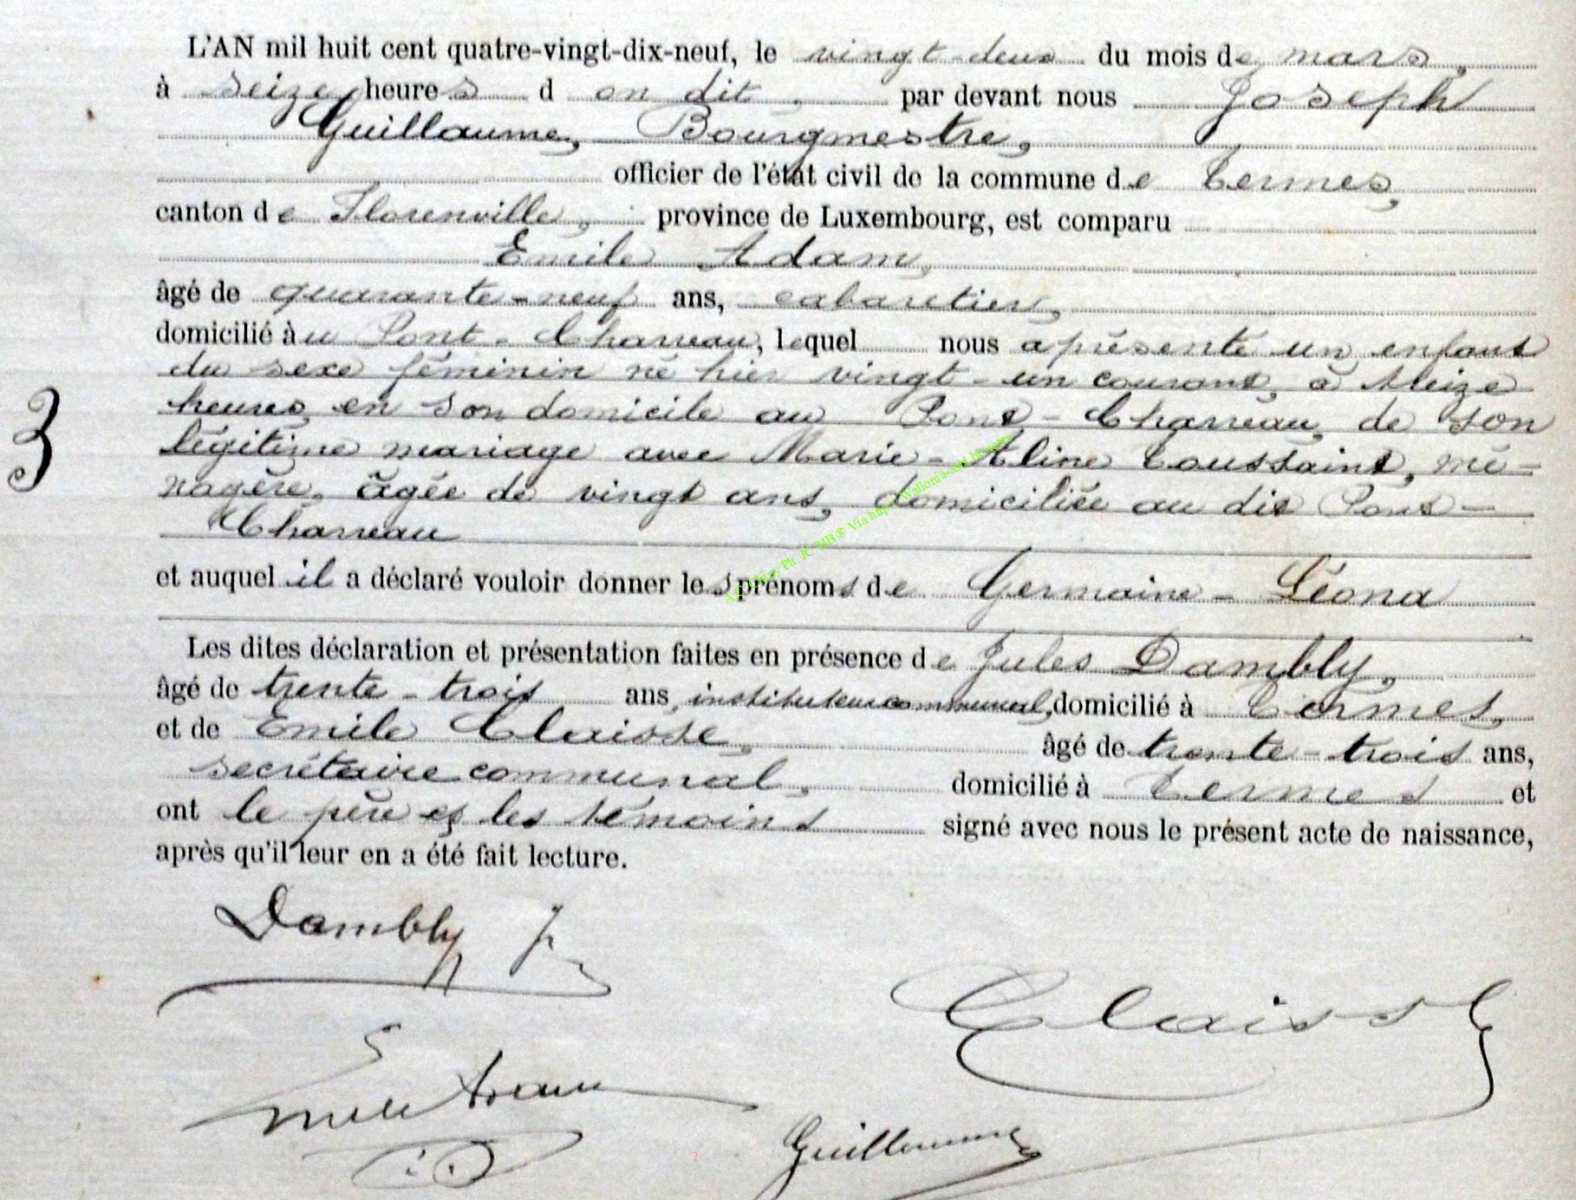 L'AN mil huit cent quatre-vingt-dix-neuf, le vingt-deux du mois de mars,
à seize heures d on dit, par devant nous Joseph
Guillaume, Bourgmestre,
officier de l'état civil de la commune de Termes,
canton de Florenville, province de Luxembourg, est comparu
Emile Adam,
âgé de quarante-neuf ans, cabaretier,
domicilié au Pont-Charreau, lequel nous a présenté un enfant
du sexe féminin né hier vingt-un courant, à treize
heures, en son domicile au Pont-Charreau, de son
légitime mariage avec Marie-Aline Toussaint, mé-
nagère, âgée de vingt ans, domiciliée au dit Pont-
Charreau
et auquel il a déclaré vouloir donner les prénoms de Germaine-Léona
Les dites déclaration et présentation faites en présence de Jules Dambly,
âgé de trente-trois ans, instituteur communal, domicilié à Termes,
et de Emile Claisse, âgé de trente-trois ans,
secrétaire communal, domicilié à Termes et
ont le père et les témoins signé avec nous le présent acte de naissance,
après qu'il leur en a été fait lecture.
3
Dambly J
Claisse
Emile Adam
Guillaume